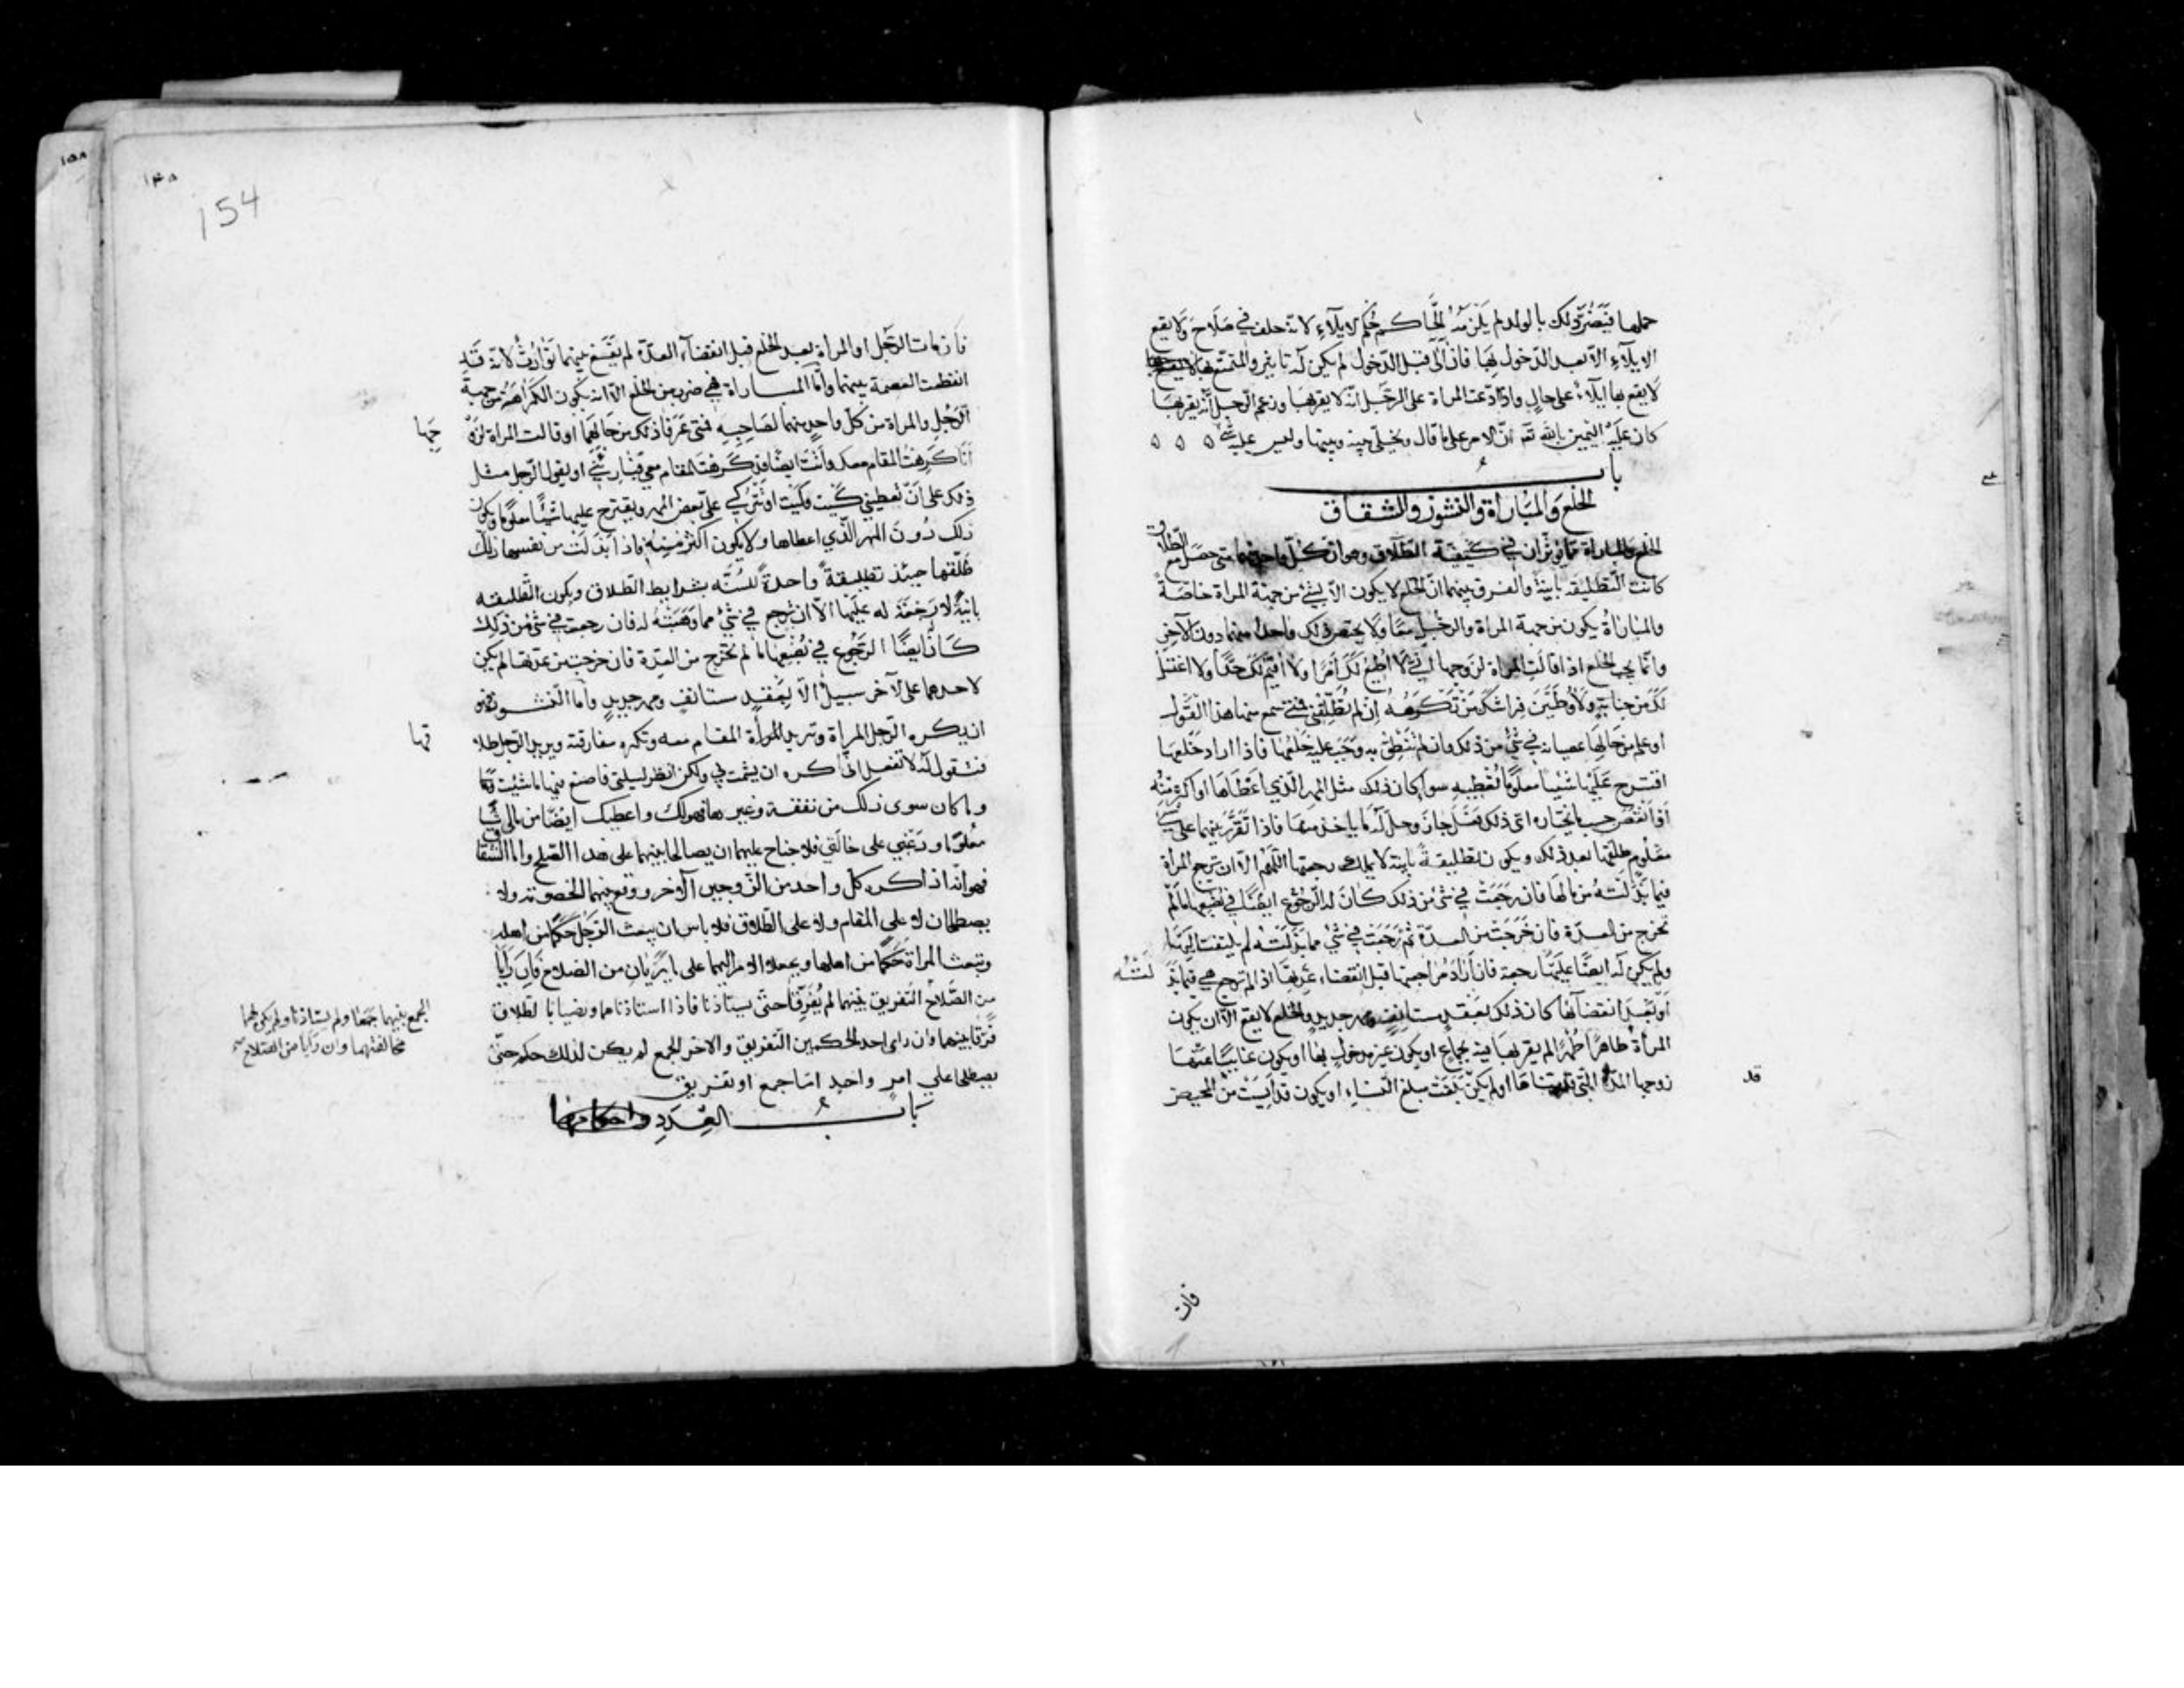 حملها فيضرّ ذلك بالولد لم يلزمه الحاكم حكم الايلاء لانه حلف في صلاح ولا يقع
الايلاء الا بعد الدخول بها فان آلى قبل الدخول لم يكن له تأثير والمتمتع بها
لا يقع بها ايلاء على حال واذا ادعت المراة على الرجل انه لا يقربها وزعم الرجل انه يقربها
كان عليه اليمين بالله تع انّ الامر على ما قال ويخلّى بينه وبينها وليس عليه شئ
باب
الخلع والمباراة والنشوز والشقاق
الخلع والمباراة مما يؤثران في كيفية الطلاق وهو ان كلّ واحد منهما متى حصل مع الطلاق
كانت التطليقة باينة والفرق بينهما انّ الخلع لا يكون الا بشئ من جهة المراة خاصة
والمباراة يكون من جهة المراة والرجل معًا ولا يختص ذلك واحد منهما دون الآخر
وانما يجب الخلع اذا قالت المراة لزوجها اني لا اطيع لك امرًا ولا اقيم لك حدًّا ولا اغتسل
لك من جنابة ولاوطئنّ فراشك من تكرهه ان لم تطلّقني فمتى سمع منها هذا القول
او علم من حالها عصيانه في شئ من ذلك وان لم تنطق به وجب عليه خلعها فاذا اراد خلعها
اقترح عليها شيئا معلومًا تعطيه سواء كان ذلك مثل المهر الذي اعطاها او اكثر منه
او انقص حسب ما يختاره اىّ ذلك فعل جاز وحلّ له ما ياخذ منها فاذا تقرر بينهما على شئ
معلوم طلقها بعد ذلك ويكون تطليقةً باينة لا يملك رجعتها اللّهم الا ان ترجع المراة
فيما بذلته من مالها فان رجعت في شئ من ذلك كان له الرجوع ايضًا في بضعها ما لم
تخرج من العدّة فان خرجت من العدّة ثم رجعت في شئ مما بذلته لم يلتفت اليها
ولم يكن له ايضًا عليها رجعة فان اراد مراجعتها قبل انقضاء عدتها اذا لم ترجع هي فيما بذ
لَتْهُ
او بعد انقضائها كان ذلك بعقد مستانف ومهر جديد والخلع لا يقع الا ان يكون
المراة طاهرًا طهرًا لم يقربها فيه بجماع او يكون غير مدخول بها او يكون غائبًا عنها
زوجها المدّة التي قدمناها او لم يكن بلغت مبلغ النساء او يكون قد آيست من المحيض
قد
فان
١٤٨
154
١٥٨
فان مات الرجل او المراة بعد الخلع قبل انقضاء العدّة لم يقع بينهما توارث لانه قد
انقطعت العصمة بينهما وامّا المباراة فهي ضرب من الخلع الا انه يكون الكراهة من جهة
الرجل والمراة من كل واحد منهما لصاحبه فمتى عرفا ذلك من حالهما او قالت المراة لزو
جها
انا كرهت المقام معك وانت ايضًا قد كرهت المقام معي فبارئني او يقول الرجل مثل
ذلك على ان تعطيني كيت وكيت او تتركي علىّ بعض المهر ويقترح عليها شيئًا معلومًا ويكون
ذلك دون المهر الذي اعطاها ولا يكون اكثر منه فاذا بذلت من نفسها ذلك
طلّقها حينئذ تطليقةً واحدةً للسّنّه بشرايط الطلاق ويكون التطليقه
باينةً لا رجعة له عليها الا ان ترجع في شئ مما وهبته له فان رجعت في شئ من ذلك
كان ايضًا الرجوع في بضعها ما لم تخرج من العدّة فان خرجت من عدتها لم يكن
لاحدهما على الآخر سبيل الا بعقد مستانف ومهر جديد وامّا النشوز فهو
ان يكره الرجل المراة وتريد المراة المقام معه وتكره مفارقته ويريد الرجل طلا
قها
فتقول له لا تفعل انى اكره ان يشمت بي ولكن انظر ليلتي فاصنع فيها ما شئت
وما كان سوى ذلك من نفقة وغيرها فهو لك واعطيك ايضًا من مالي شيئا
معلومًا ودعني على حالتي فلا جناح عليهما ان يصالحا بينهما على هذا الصلح وامّا الشقاق
فهو انّه اذا كره كل واحد من الزوجين الآخر ووقع بينهما الخصومة ولا
يصطلحان لا على المقام ولا على الطلاق فلا باس ان يبعث الرجل حكمًا من اهله
وتبعث المراة حكمًا من اهلها ويجعلا الامر اليهما على ما يريان من الصلاح فان رايا
من الصلاح التفريق بينهما لم يفرّقا حتى يستاذنا فاذا استاذناهما ورضيا بالطلاق
فرّقا بينهما وان راى احد الحكمين التفريق والاخر الجمع لم يكن لذلك حكم حتى
يصطلحا على امر واحد امّا جمع او تفريق
باب العِدَد واحكامها
الجمع بينهما جمعا ولم يستاذنا ولم يكن لهما
مخالفتهما وان رايا من الصلاح